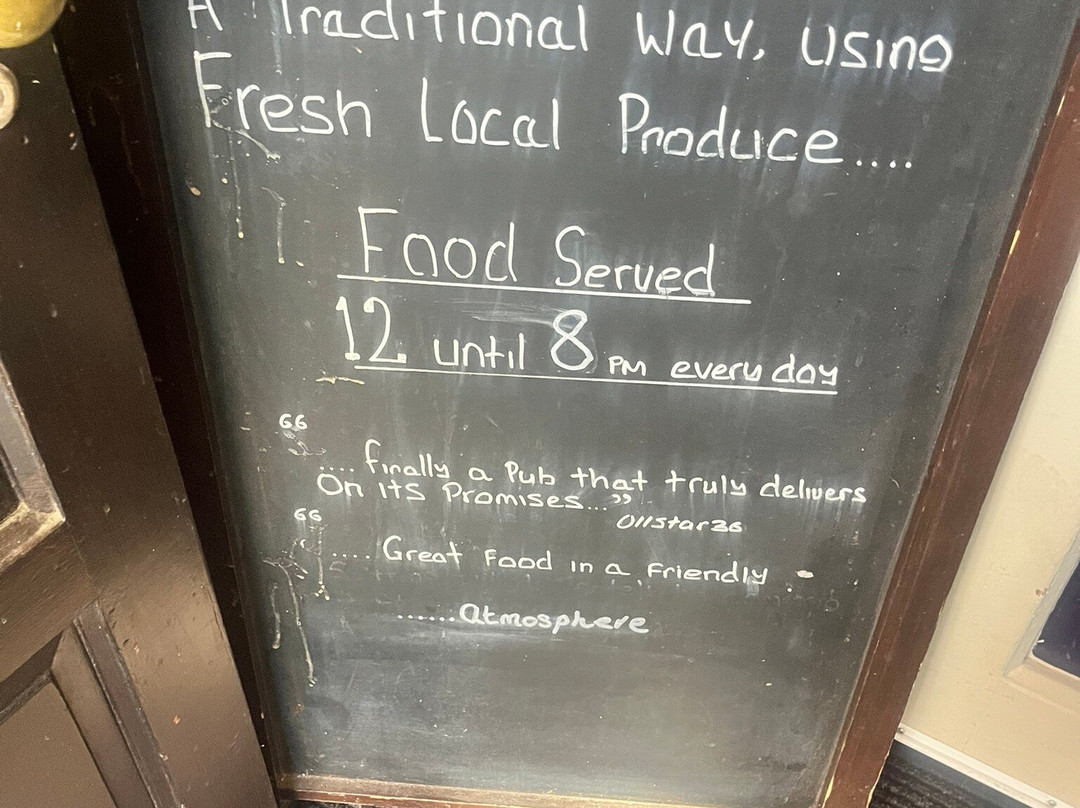 A Traditional Way, Using
Fresh Local Produce....
Food Served
12 until 8 PM every day
“
.... finally a Pub that truly delivers
On its Promises...”
Ollstar36
“
.... Great Food in a Friendly
......atmosphere